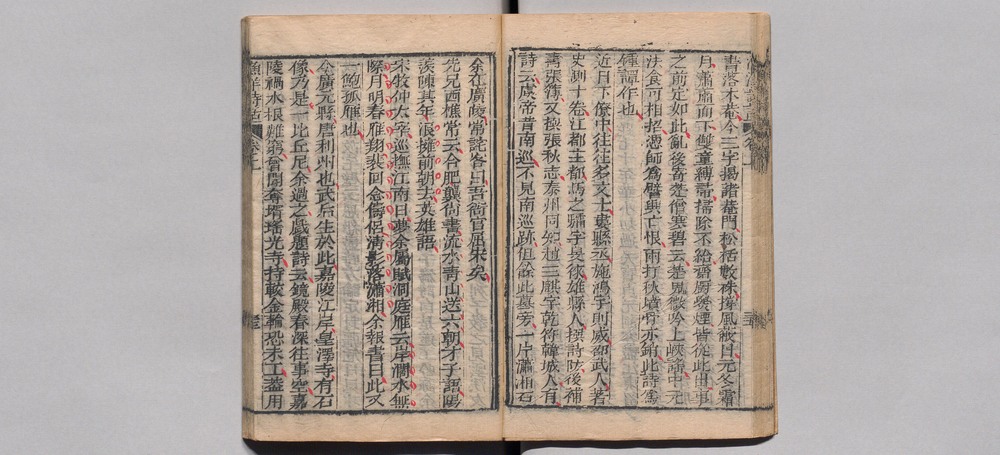 書落木菴今三字揭諸菴門松栝數株撐風蔽日元冬霜
月蕭蕭而下雙童縛帚掃除不給齋廚爨煙皆從此出事
之前定如此亂後寄楚僧寒碧云楚鬼微吟上峽諳中元
法食可相招憑師爲譬興亡恨雨打秋墳骨亦銷此詩爲
鍾譚作也
近日下僚中往往多文士葉縣丞施鴻字則威邵武人著
史測十卷江都主都馮之驌字良徐雄縣人撰詩防後補
壽張簿又撰張秋志泰州同知趙三麒字乾符韓城人有
詩云虞帝昔南巡不見南巡跡但餘此墓旁一片瀟湘石
余在廣陵常詫客曰吾衙官屈宋矣
先兄西樵常云合肥龔尚書流水青山送六朝才子語陽
羨陳其年浪擁前朝去英雄語
宋牧仲太宰巡撫江南日夢余屬賦洞庭雁云岸濶水無
際月明春雁翔裴回念儔侶清影落瀟湘余報書曰此又
一鮑孤雁也
今廣元縣唐利州也武后生於此嘉陵江岸皇澤寺有石
像乃是一比丘尼余過之戲題詩云鏡殿春深往事空嘉
陵禍水恨難窮曾聞奪壻瑤光寺持較金輪恐未工蓋用
漁洋詩話 卷上